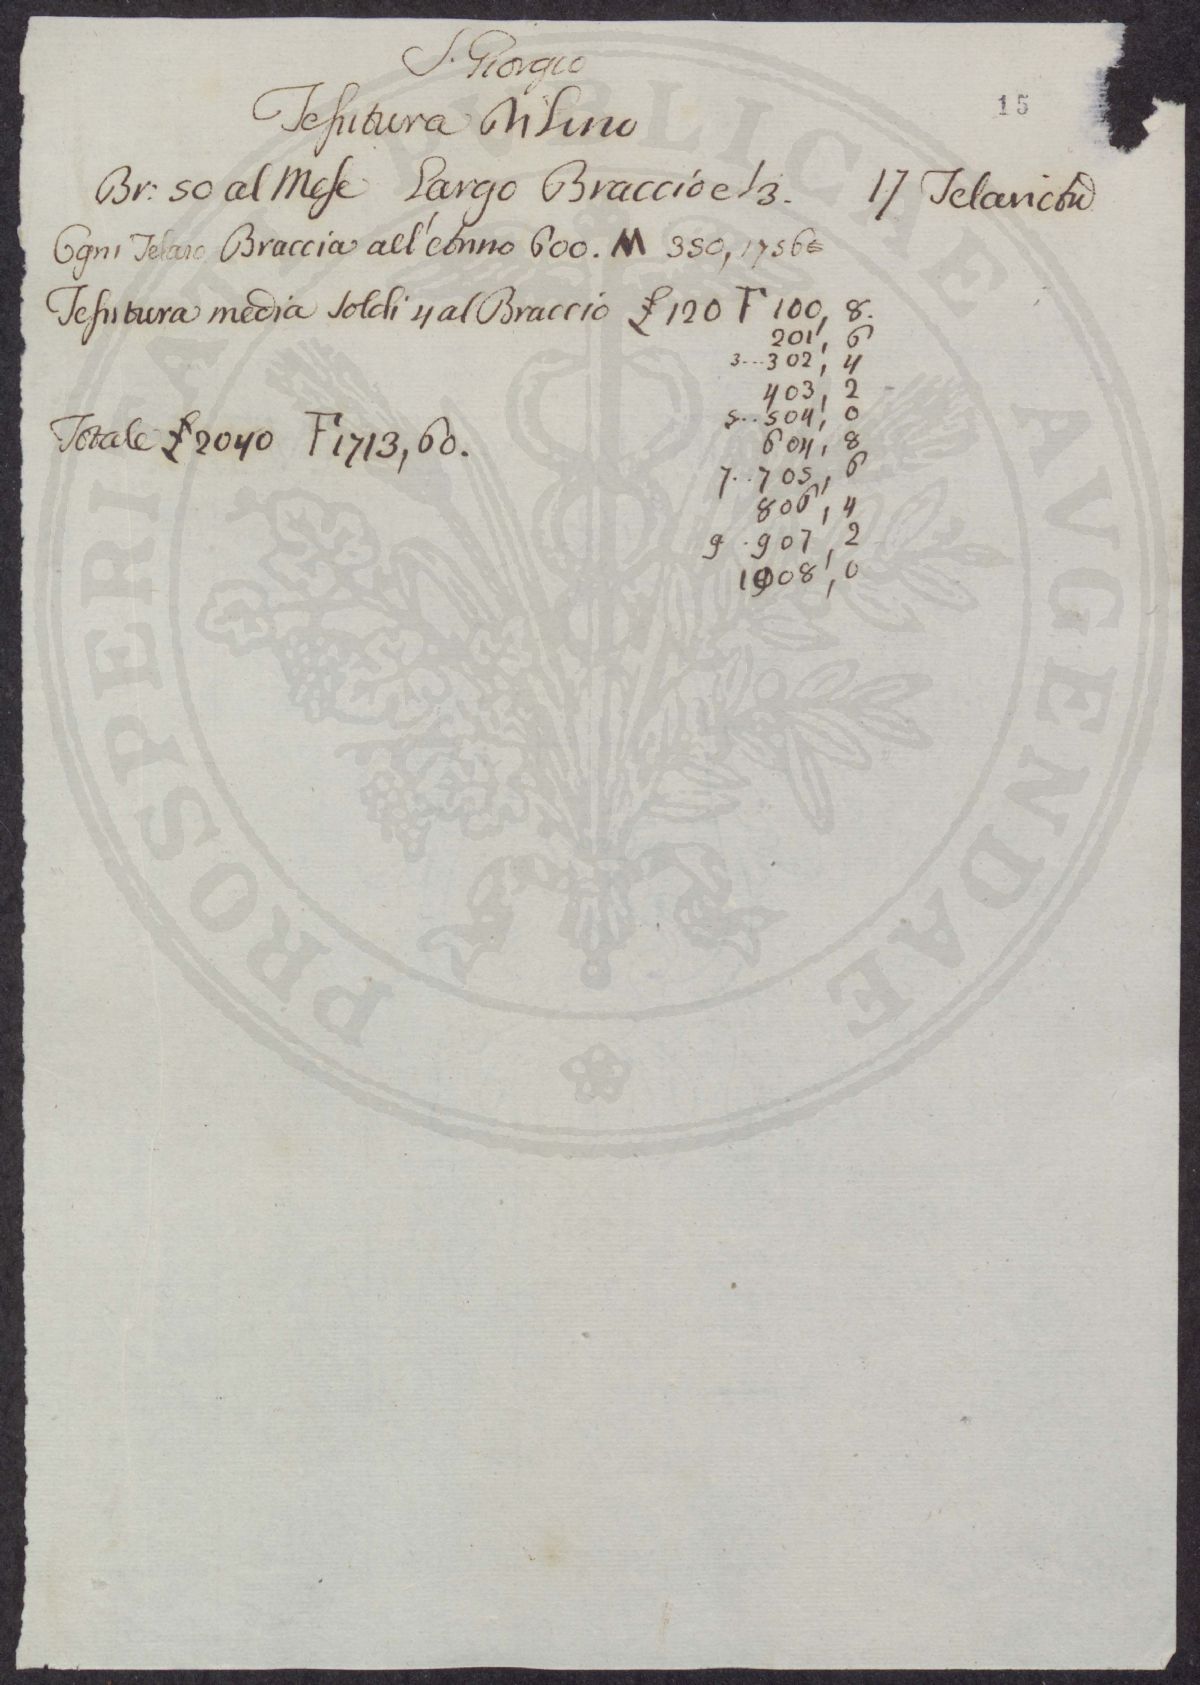 S. Giorgio
15
Tessutura di Lino
Br: 50 al Mese Largo Braccio e 1/3. 17 Telari
Ogni Telaro Braccia all'Anno 600. M 350,1756
Tessutura media soldi 4 al Braccio £ 120 F 100, 8.
201, 6
3...302, 4
403, 2
5..504, 0
604, 8
7..705, 6
806, 4
9.907, 2
1008, 0
Totale £ 2040 F 1713, 60.
PROSPERITATI PUBLICAE AUGENDAE